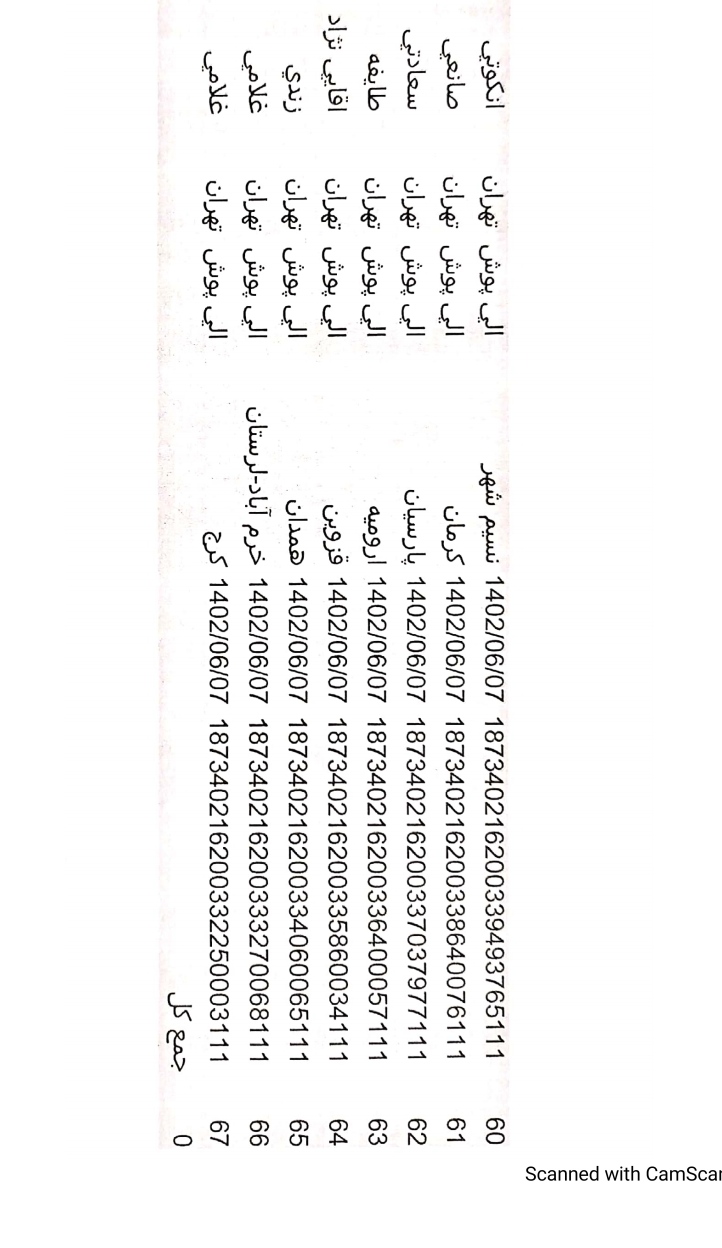 60 187340216200339493765111 1402/06/07 نسيم شهر الي پوش تهران انكوتي
61 187340216200338640076111 1402/06/07 كرمان الي پوش تهران صانعي
62 187340216200337037977111 1402/06/07 پارسيان الي پوش تهران سعادتي
63 187340216200336400057111 1402/06/07 اروميه الي پوش تهران طايفه
64 187340216200335860034111 1402/06/07 قزوين الي پوش تهران اقايي نژاد
65 187340216200334060065111 1402/06/07 همدان الي پوش تهران زندي
66 187340216200333270068111 1402/06/07 خرم آباد-لرستان الي پوش تهران غلامي
67 187340216200332250003111 1402/06/07 كرج الي پوش تهران غلامي
0 جمع كل
Scanned with CamScar